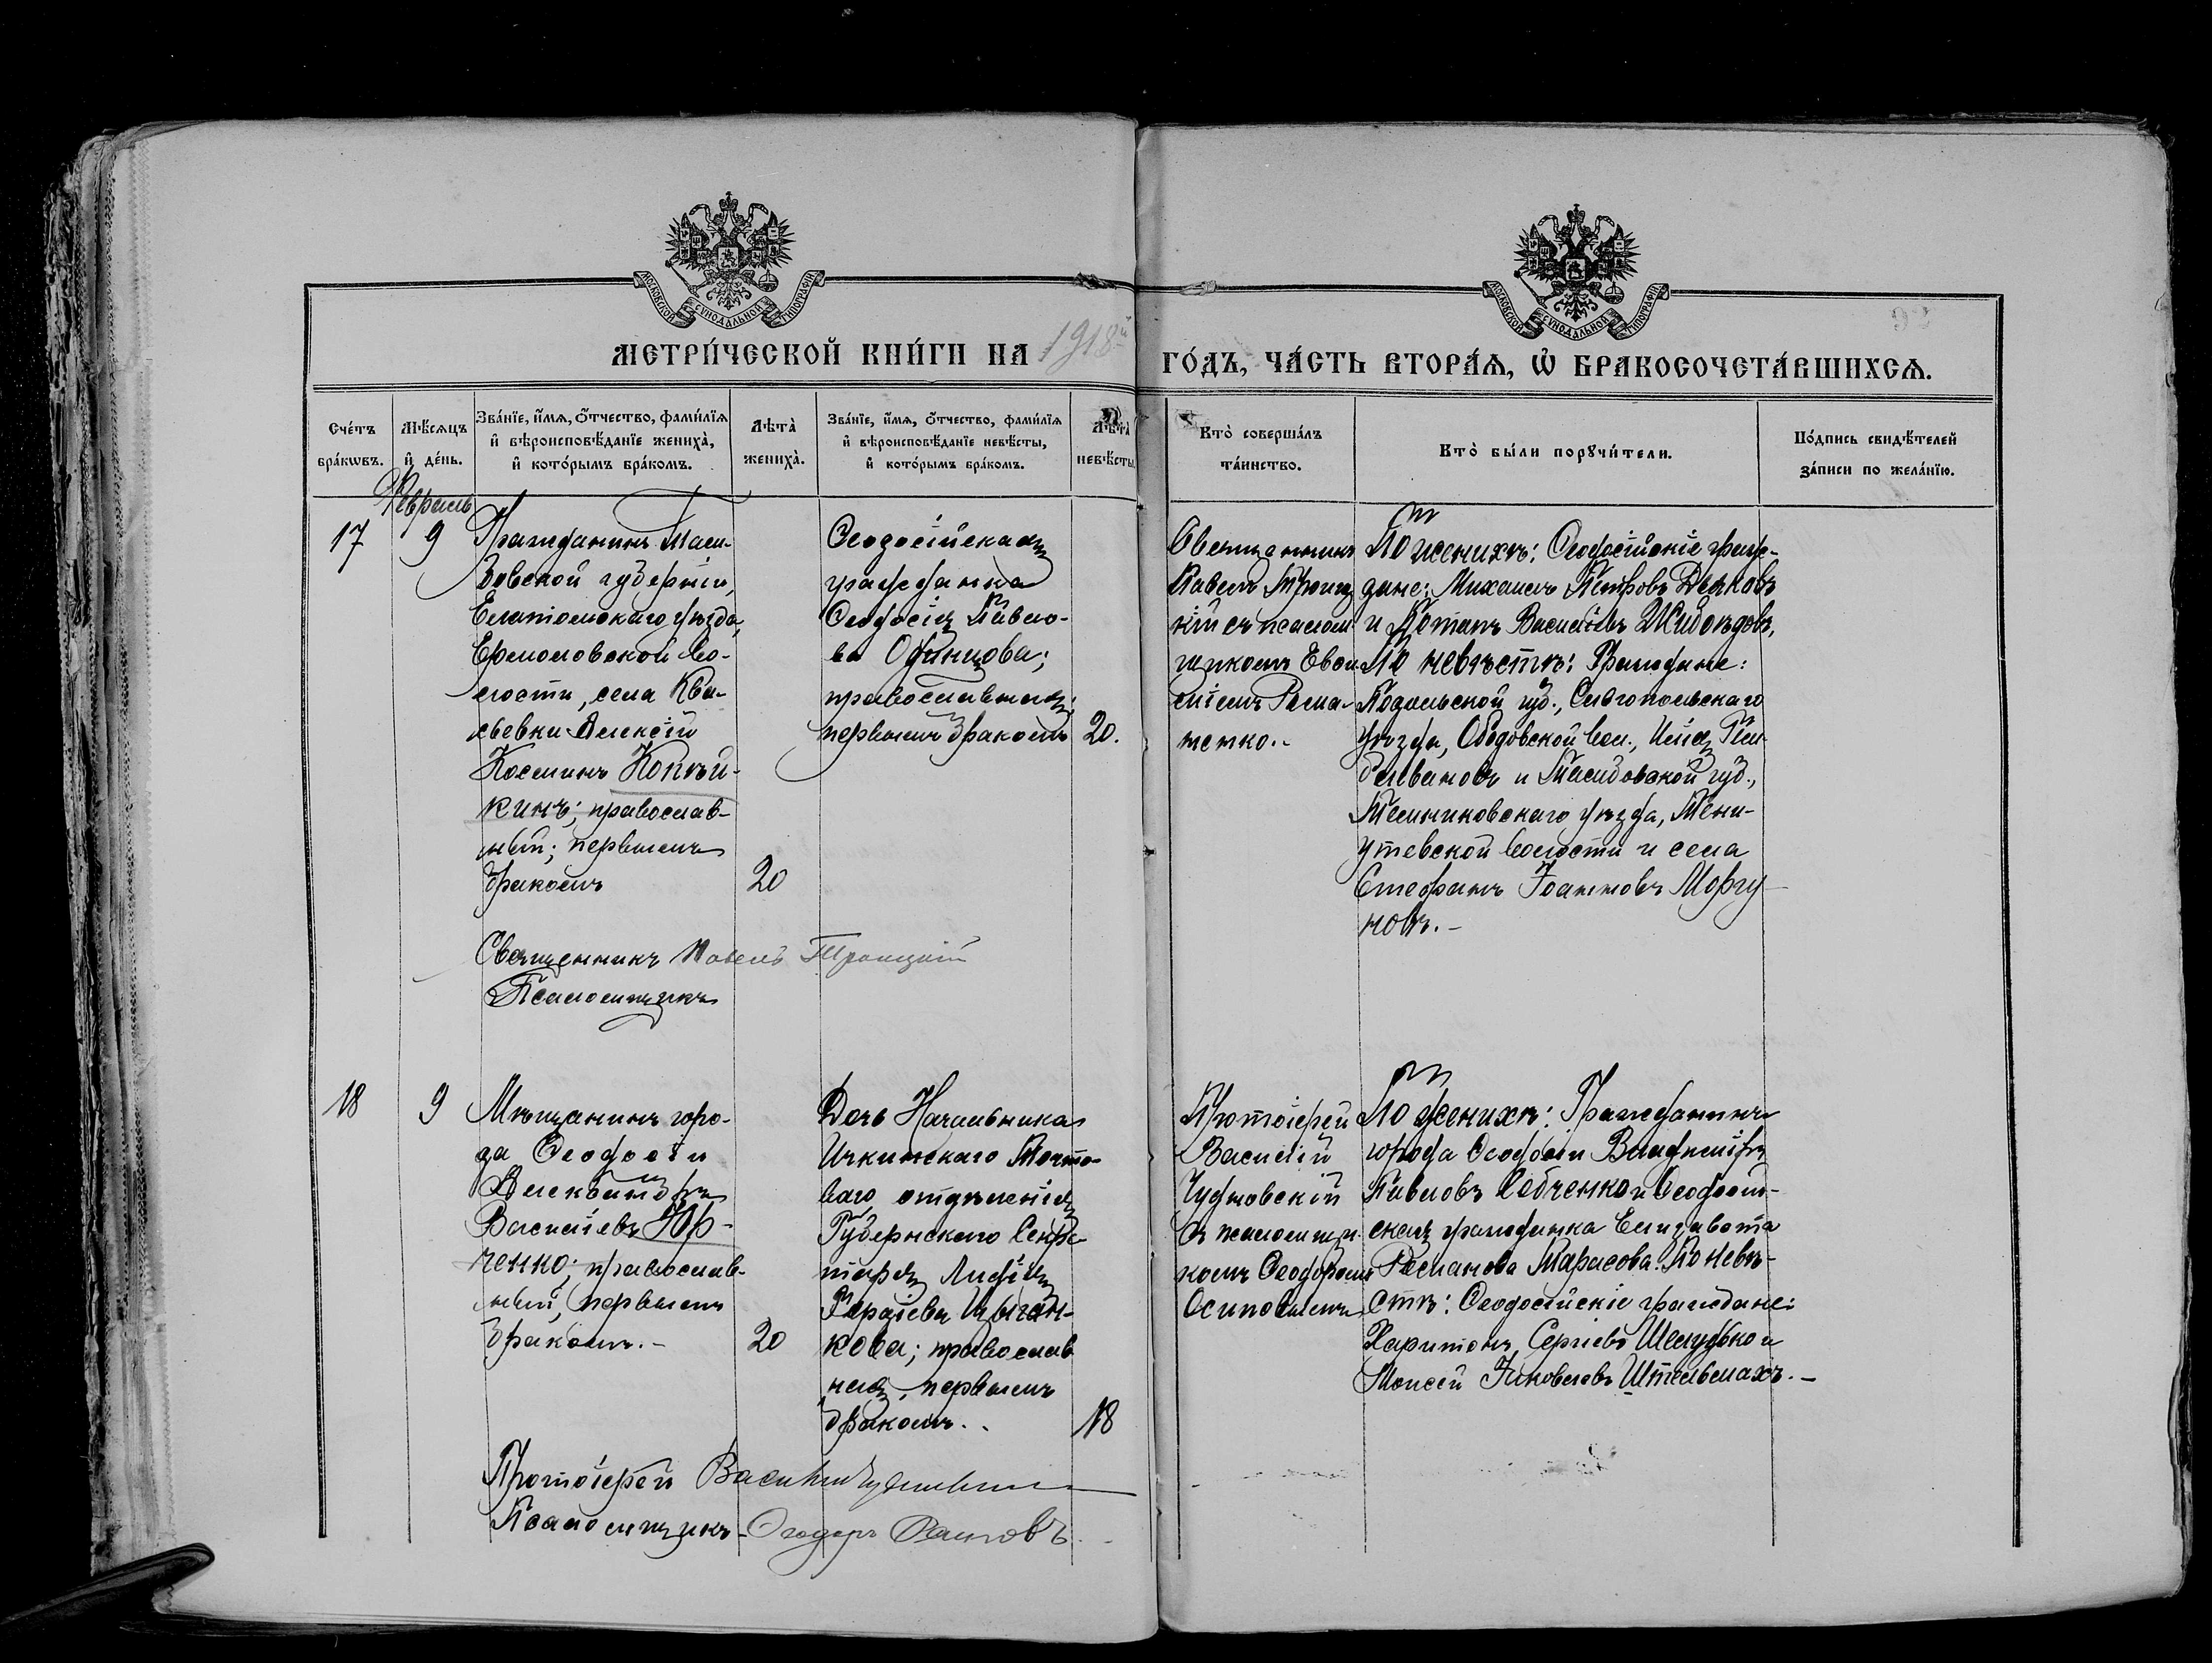 МОСКОВСКОЙ СѴНОДАЛЬНОЙ ТИПОГРАФІИ
МОСКОВСКОЙ СѴНОДАЛЬНОЙ ТИПОГРАФІИ
МЕТРИ́ЧЕСКОЙ КНИ́ГИ НА 1918й ГО́ДЪ, ЧА́СТЬ ВТОРА́Я, Ѽ БРАКОСОЧЕТА́ВШИХСЯ.
Сче́тъ
бра́кѡвъ.
Мѣ́сяцъ
и҆ де́нь.
Зва́нїе, и҆́мя, ѻ҆́тчество, фами́лїя
и҆ вѣроисповѣ́данїе жениха̀,
и҆ кото́рымъ бра́комъ.
Лѣта̀
жениха̀.
Зва́нїе, и҆́мя, ѻ҆́тчество, фами́лїя
и҆ вѣроисповѣ́данїе невѣ́сты,
и҆ кото́рымъ бра́комъ.
Лѣта̀
невѣ́сты.
Кто̀ соверша́лъ
та́инство.
Кто̀ бы́ли порꙋчи́тели.
По́дпись свидѣ́телей
за́писи по жела́нїю.
Февраль
17
9
Гражданинъ Там-
бовской губерніи,
Елатомскаго уѣзда,
Ермоловской во-
лости, села Ква-
сьевки Алексій
Косминъ Копѣй-
кинъ; православ-
ный; первымъ
бракомъ
20
Ѳеодосійская
гражданка
Ѳеодосія Павло-
ва Одинцова;
православная;
первымъ бракомъ
20.
Священникъ
Павелъ Троиц
кій съ псалом
щикомъ Евсе
віемъ Рома-
ненко.
По женихѣ: Ѳеодосійскіе граж-
дане: Михаилъ Петровъ Дьяковъ
и Потапъ Васильевъ Жидовѣдовъ,
По невѣстѣ: Граждане:
Подольской губ., Ольгопольскаго
уѣзда, Ободовской вол., Илія
и Тамбовской губ.,
Темниковскаго уѣзда, Тени-
ушевской волости и села
Стефанъ Іоанновъ Моргу-
новъ.-
Священникъ Павелъ Троицкій
Псаломщикъ
18
9
Мѣщанинъ горо-
да Ѳеодосіи
Александръ
Васильевъ Юр-
ченко; православ-
ный, первымъ
бракомъ.-
20
Дочь Начальника
Ичкинскаго Почто-
ваго отдѣленія
Губернскаго Секре-
таря Лидія
Цыган-
кова; православ
ная, первымъ
бракомъ.
18
Протоіерей
Василій
Чудновскій
съ псаломщи-
комъ Ѳеодоромъ
Осиповымъ
По женихѣ: Гражданинъ
города Ѳеодосіи Владиміръ
Павловъ Собченко и Ѳеодосій-
ская гражданка Елизавета
Романова Марасова. По невѣ-
стѣ: Ѳеодосійскіе граждане:
Харитонъ Сергіевъ Шелудько и
Моисей Яковлевъ Штельмахъ.-
Протоіерей Василій Чудновскій
Псаломщикъ Ѳеодоръ Осиповъ.